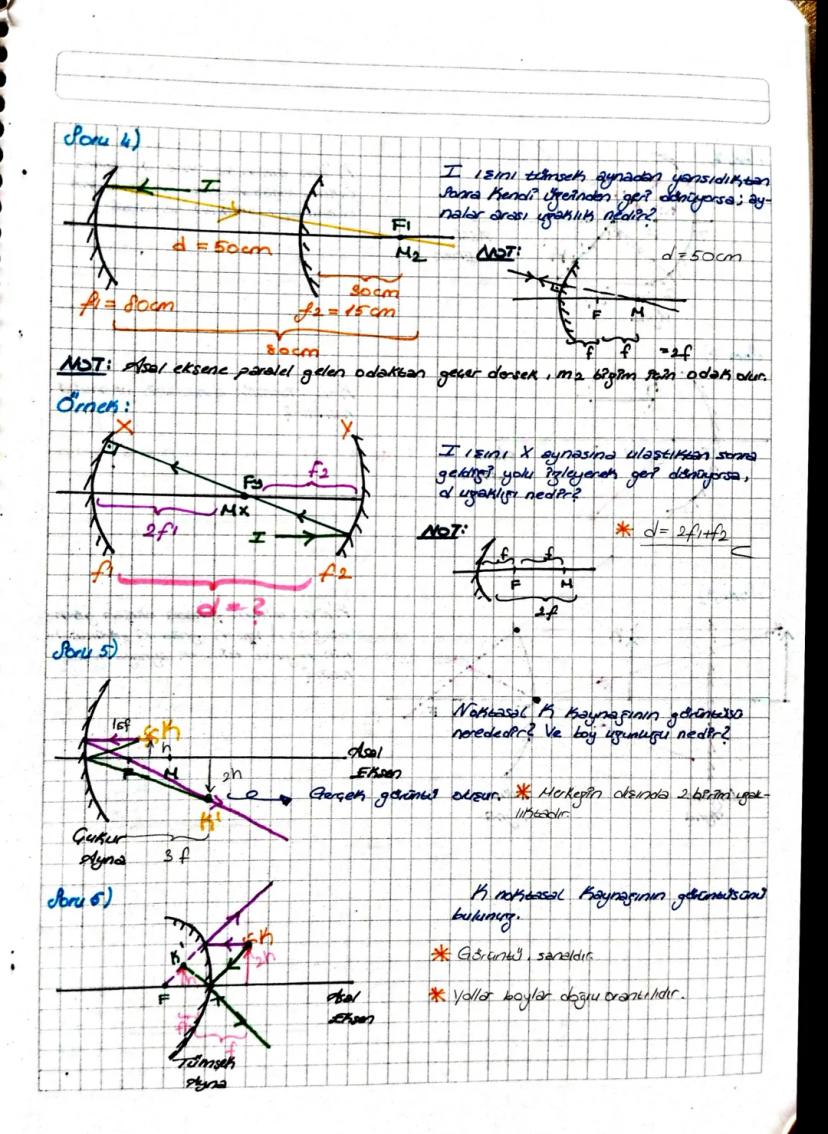 Soru 4)
I ışını tümsek aynadan yansıdıktan
sonra kendi üzerinden geri dönüyorsa; ay-
nalar arası uzaklık nedir?
I
F1
M2
d = 50cm
30cm
f1 = 80cm
f2 = 15cm
80cm
NOT:
d = 50cm
F
M
f
f
=2f
NOT: Asal eksene paralel gelen odaktan geçer dersek, m2 bizim için odak olur.
Örnek:
X
Y
I ışını X aynasına ulaştıktan sonra
geldiği yolu izleyerek geri dönüyorsa,
d uzaklığı nedir?
Fy
f2
Mx
2f1
I
f1
f2
d = ?
NOT:
* d = 2f1+f2
f
f
F
M
2f
Soru 5)
Noktasal K kaynağının görüntüsü
nerededir? Ve boy uzunluğu nedir?
K
h
F
M
Asal
Eksen
2h
K'
Gerçek görüntü oluşur.
* Merkezin dışında 2 birim uzak-
lıktadır.
Çukur
Ayna
3f
Soru 6)
K noktasal kaynağının görüntüsünü
bulunuz.
K
2h
K'
h
F
Asal
Eksen
f
* Görüntü, sanaldır.
* Yollar boylar doğru orantılıdır.
Tümsek
Ayna